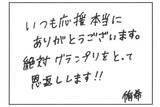 いつも応援本当に
ありがとうございます。
絶対グランプリをとって
恩返しします!!